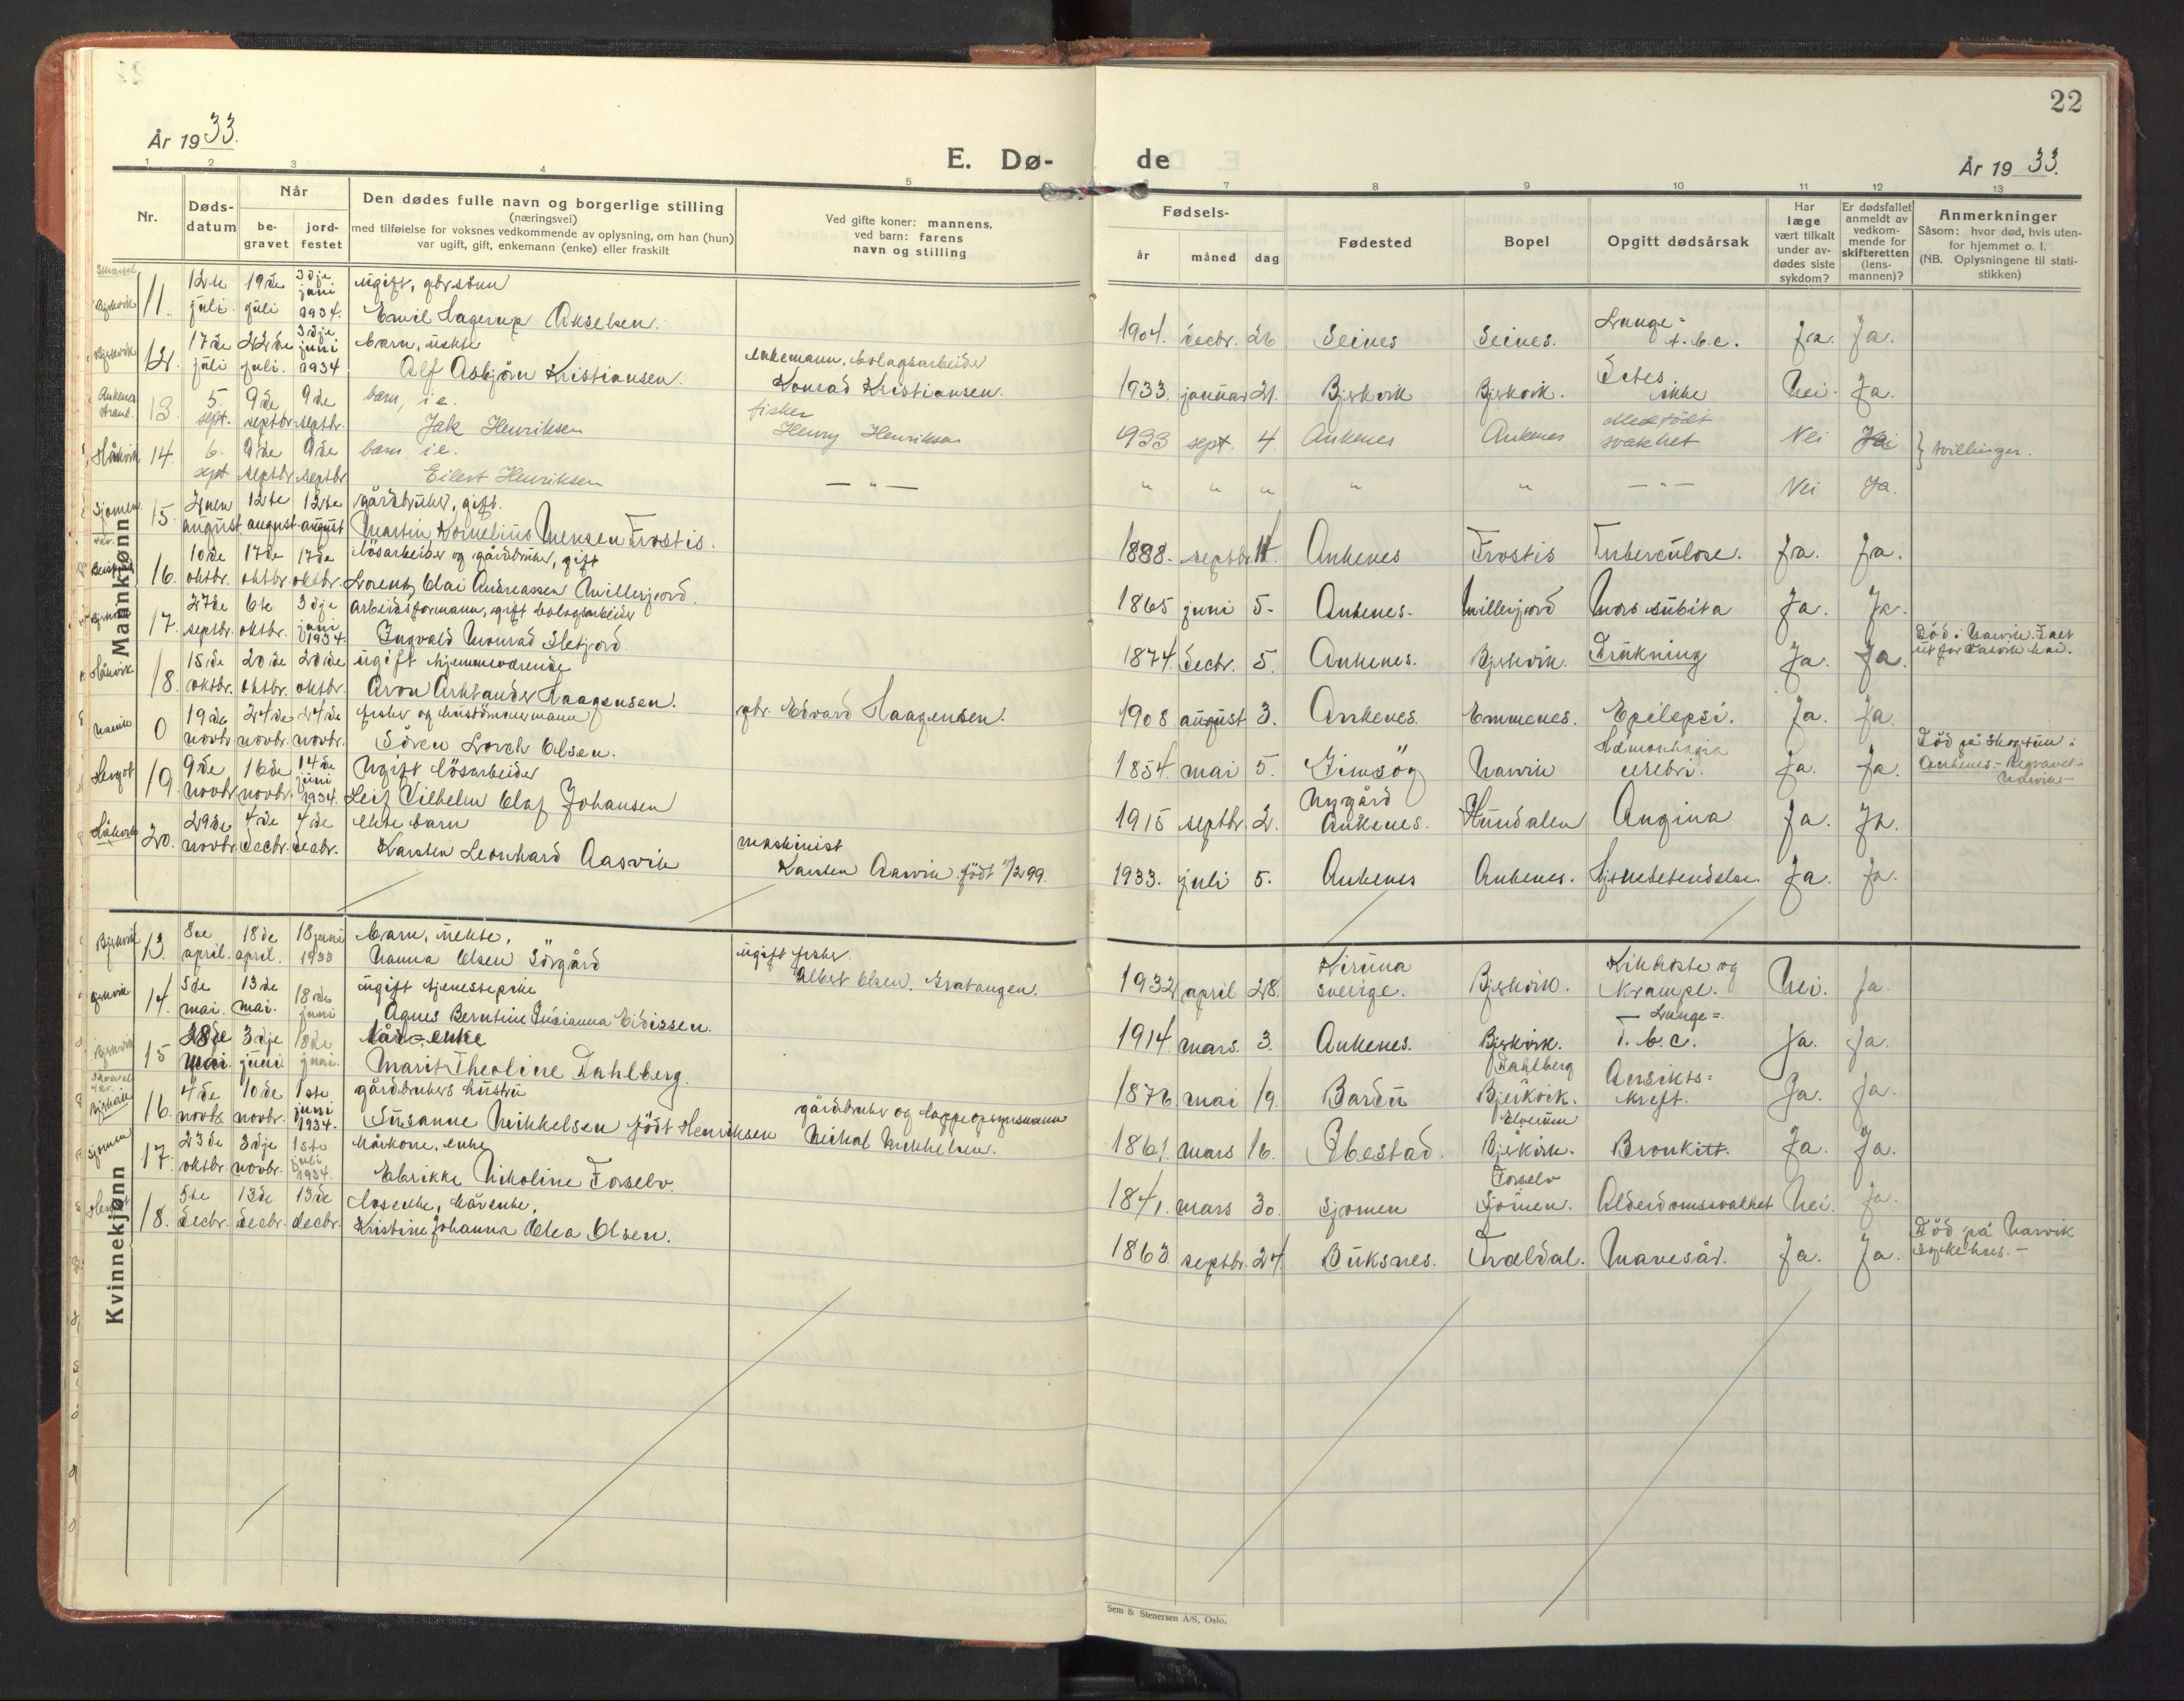 22
År 1933.
E. Dø-
de
År 1933.
1 2 3 4 5
7 8 9 10 11 12 13
Nr.
Døds-
datum
Når
be-
gravet
jord-
festet
Den dødes fulle navn og borgerlige stilling
(næringsvei)
med tilføielse for voksnes vedkommende av oplysning, om han (hun)
var ugift, gift, enkemann (enke) eller fraskilt
Ved gifte koner: mannens,
ved barn: farens
navn og stilling
Fødsels-
år
måned
dag
Fødested
Bopel
Opgitt dødsårsak
Har
læge
vært tilkalt
under av-
dødes siste
sykdom?
Er dødsfallet
anmeldt av
vedkom-
mende for
skifteretten
(lens-
mannen)?
Anmerkninger
Såsom: hvor død, hvis uten-
for hjemmet o. l.
(NB. Oplysningene til stati-
stikken)
Mannkjønn
Bjerkvik 11. 12te juli. 19de juli 3dje juni 1934. ugift, gbr.sønn
Emil Hagerup Akselsen.
1904. decbr. 26 Seines Seines. Lunge= t.b.c. Ja. Ja.
Bjerkvik 12. 17de juli 22de juli. 3dje juni 1934 barn, uekte
Alf Asbjörn Kristiansen.
enkemann, bolagsarbeider
Konrad Kristiansen.
1933. januar 21. Bjerkvik Bjerkvik. ikke Nei. Ja.
Ankenes strand. 13. 5. sept. 9de septbr. 9de septbr. barn, ie.
Jak Henriksen
fisker
Henry Henriksen
1933 sept. 4. Ankenes Ankenes Medfödt svakhet Nei tvillinger.
Håkvik 14. 6. sept 9de septbr 9de septbr barn, ie.
Eilert Henriksen
— " —
" " " " " — " — Nei Ja.
Sjomen. 15. 2nen august. 12te august 12te august gårdbruker, gift.
Martin Kornelius Mensen Frostis.
1888. septbr. Ankenes Frostis Tuberculose. Ja. Ja.
16. 10de oktbr. 17de oktbr. 17de oktbr. lösarbeider og gårdbruker, gift
Lorentz Olai Andreassen Millerjord.
1865 juni 5. Ankenes. Millerjord Mors subita Ja. Ja.
17. 27de septbr. 6te oktbr. 3dje juni 1934. arbeidsformann, gift bolagsarbeider
Ingvald Monrad Sletjord.
1874. decbr. 5. Ankenes. Bjerkvik. Drukning Ja. Ja.
Håkvik 18. 15de oktbr. 20de oktbr. 20de oktbr. ugift hjemmeværende
Aron Arktander Haagensen.
gbr. Edvard Haagensen.
1908 august 3. Ankenes. Emmenes. Epilepsi. Ja. Ja.
Narvik 0 19de novbr. 24de novbr. 24de novbr. fisker og hustömmermann
Sören Lorch Olsen.
1854. mai 5. Gimsöy Narvik cerebri. Ja. Ja.
Död på Skogtun i
Ankenes.- Begravet i
Narvik.-
Hergot 19. 9de novbr. 16de novbr. 14de juni 1934. Ugift lösarbeider
Leif Vilhelm Olaf Johansen
1915 septbr. 2. Nygård
Ankenes. Hundalen Angina Ja. Ja.
Håkvik 20. 29de novbr. 4de decbr. 4de decbr. ekte barn
Karsten Leonhard Aasvik
maskinist
Karsten Aasvik. födt 11/2 99.
1933. juli 5. Ankenes Ankenes. Ja. Ja.
Kvinnekjønn
Bjerkvik 13. 8de april. 18de april. 18 juni 1933 barn, uekte,
Nanna Olsen Sörgård
ugift fisker
Albert Olsen, Gratangen.
1932 april 28. Kiruna
Sverige. Bjerkvik. Kikhoste og
Krampe. Nei. Ja.
Bjerkvik 14. 5de mai. 13de mai. 18de juni ugift tjenestepike
Agnes Berntine Susianna Eidissen.
1914. mars. 3. Ankenes. Bjerkvik. — Lunge=
T.b.c. Ja. Ja.
Bjerkvik 15 28de mai. 3dje juni. 18de juni. kår-enke
Marit Theoline Dahlberg.
1876 mai 19. Bardu Dahlberg
Bjerkvik. Ansikts=
kreft. Ja. Ja.
Bjerkvik 16. 4de novbr. 10de novbr. 1ste juni 1934. gårdbrukers hustru
Susanne Mikkelsen födt Henriksen
gårdbruker og lappeopsynsmann
Mikal Mikkelsen.
1861. mars 16. Ibestad. Elverum
Bjerkvik. Bronkitt. Ja. Ja.
Sjomen 17. 23de oktbr. 3dje novbr. 1ste juli 1934. kårkone, enke
Elrikke Nikoline Forselv.
1841. mars 30. Sjomen Forselv
Sjomen. Alderdomssvakhet Nei. Ja.
18. 5te decbr. 13de decbr. 13de decbr. kårenke,
Kristine Johanna Olea Olsen.
1863. septbr. 24. Buksnes. Trældal. Mavesår. Ja. Ja.
Död på Narvik
sykehus.-
Sem & Stenersen A/S, Oslo.